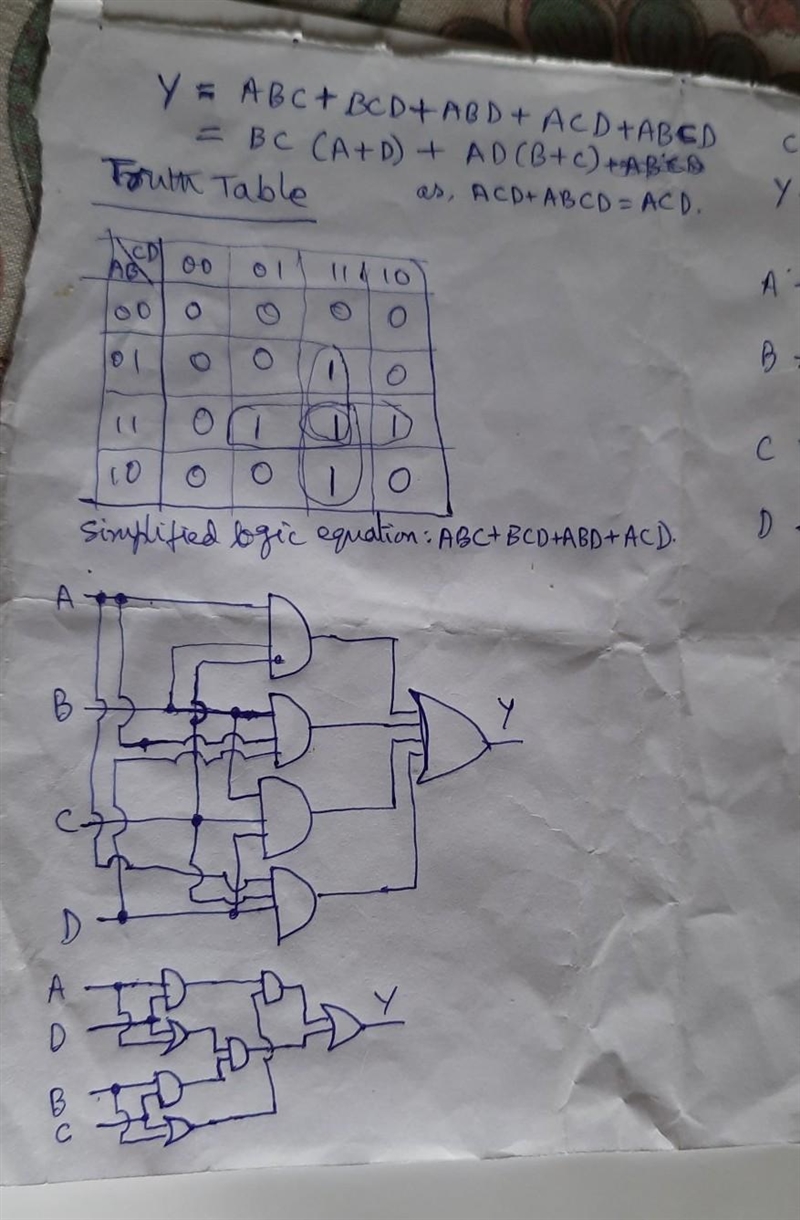 Y = ABC + BCD + ABD + ACD + ABCD
= BC (A+D) + AD(B+C) + ABCD
Truth Table
as, ACD+ABCD = ACD.
CD
AB 00 01 11 10
00 0 0 0 0
01 0 0 1 0
11 0 1 1 1
10 0 0 1 0
Simplified logic equation: ABC+BCD+ABD+ACD.
A
B
Y
C
D
A
Y
D
B
C
C
Y
A
B
C
D